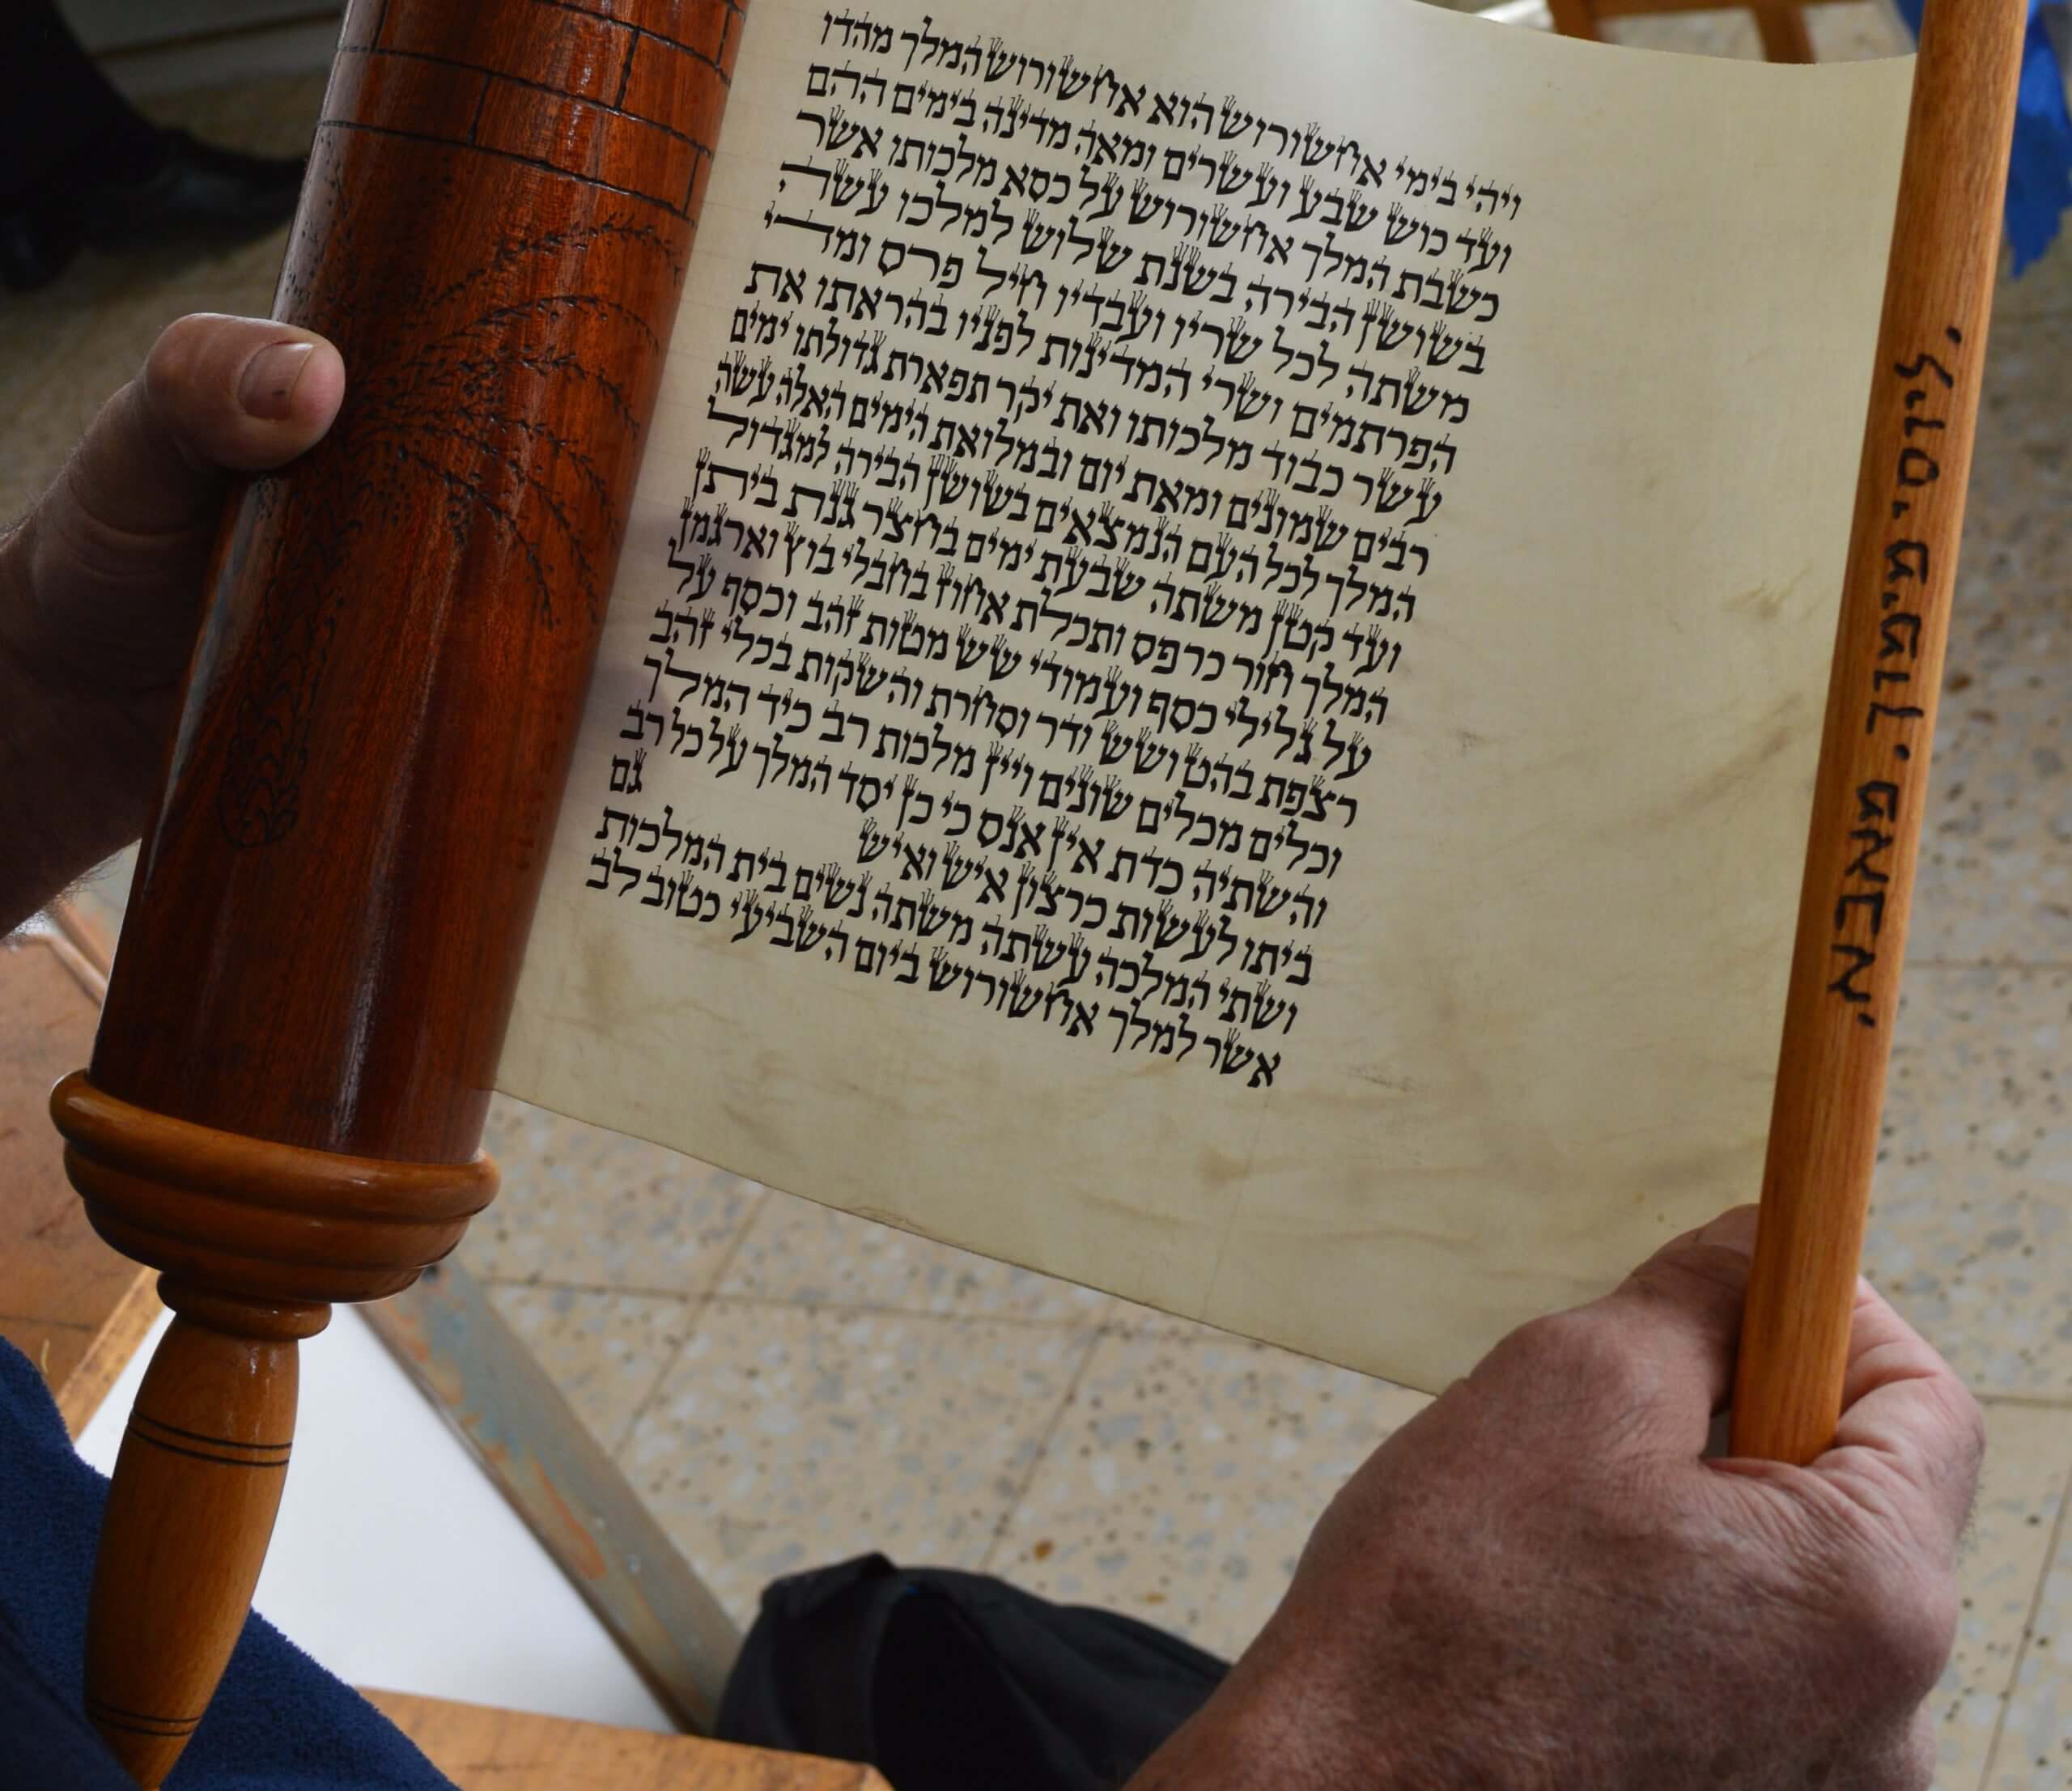 ויהי בימי אחשורוש הוא אחשורוש המלך מהדו
ועד כוש שבע ועשרים ומאה מדינה בימים ההם
כשבת המלך אחשורוש על כסא מלכותו אשר
בשושן הבירה בשנת שלוש למלכו עשה
משתה לכל שריו ועבדיו חיל פרס ומדי
הפרתמים ושרי המדינות לפניו בהראתו את
עשר כבוד מלכותו ואת יקר תפארת גדולתו ימים
רבים שמונים ומאת יום ובמלואת הימים האלה עשה
המלך לכל העם הנמצאים בשושן הבירה למגדול
ועד קטן משתה שבעת ימים בחצר גנת ביתן
המלך חור כרפס ותכלת אחוז בחבלי בוץ וארגמן
על גלילי כסף ועמודי שש מטות זהב וכסף על
רצפת בהט ושש ודר וסחרת והשקות בכלי זהב
וכלים מכלים שונים ויין מלכות רב כיד המלך
והשתיה כדת אין אנס כי כן יסד המלך על כל רב
ביתו לעשות כרצון איש ואיש גם
ושתי המלכה עשתה משתה נשים בית המלכות
אשר למלך אחשורוש ביום השביעי כטוב לב